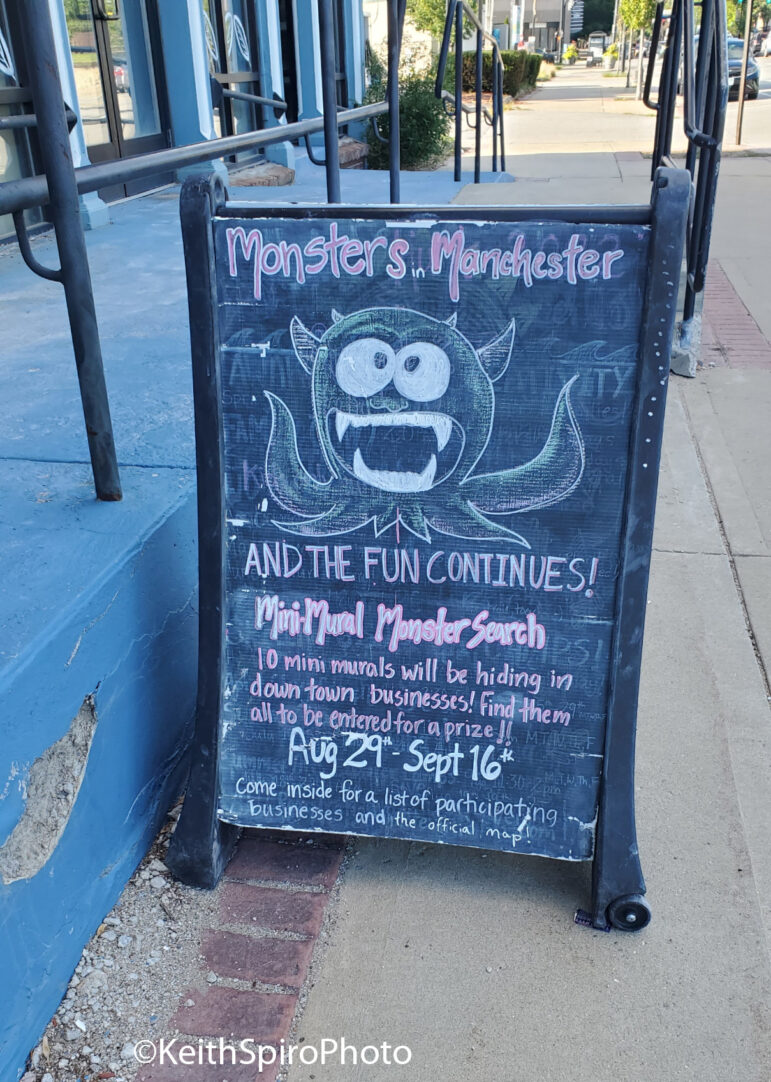 Monsters in Manchester
AND THE FUN CONTINUES!
Mini-Mural Monster Search
10 mini murals will be hiding in
down town businesses! Find them
all to be entered for a prize!!
Aug 29th - Sept 16th
Come inside for a list of participating
businesses and the official map!
©KeithSpiroPhoto